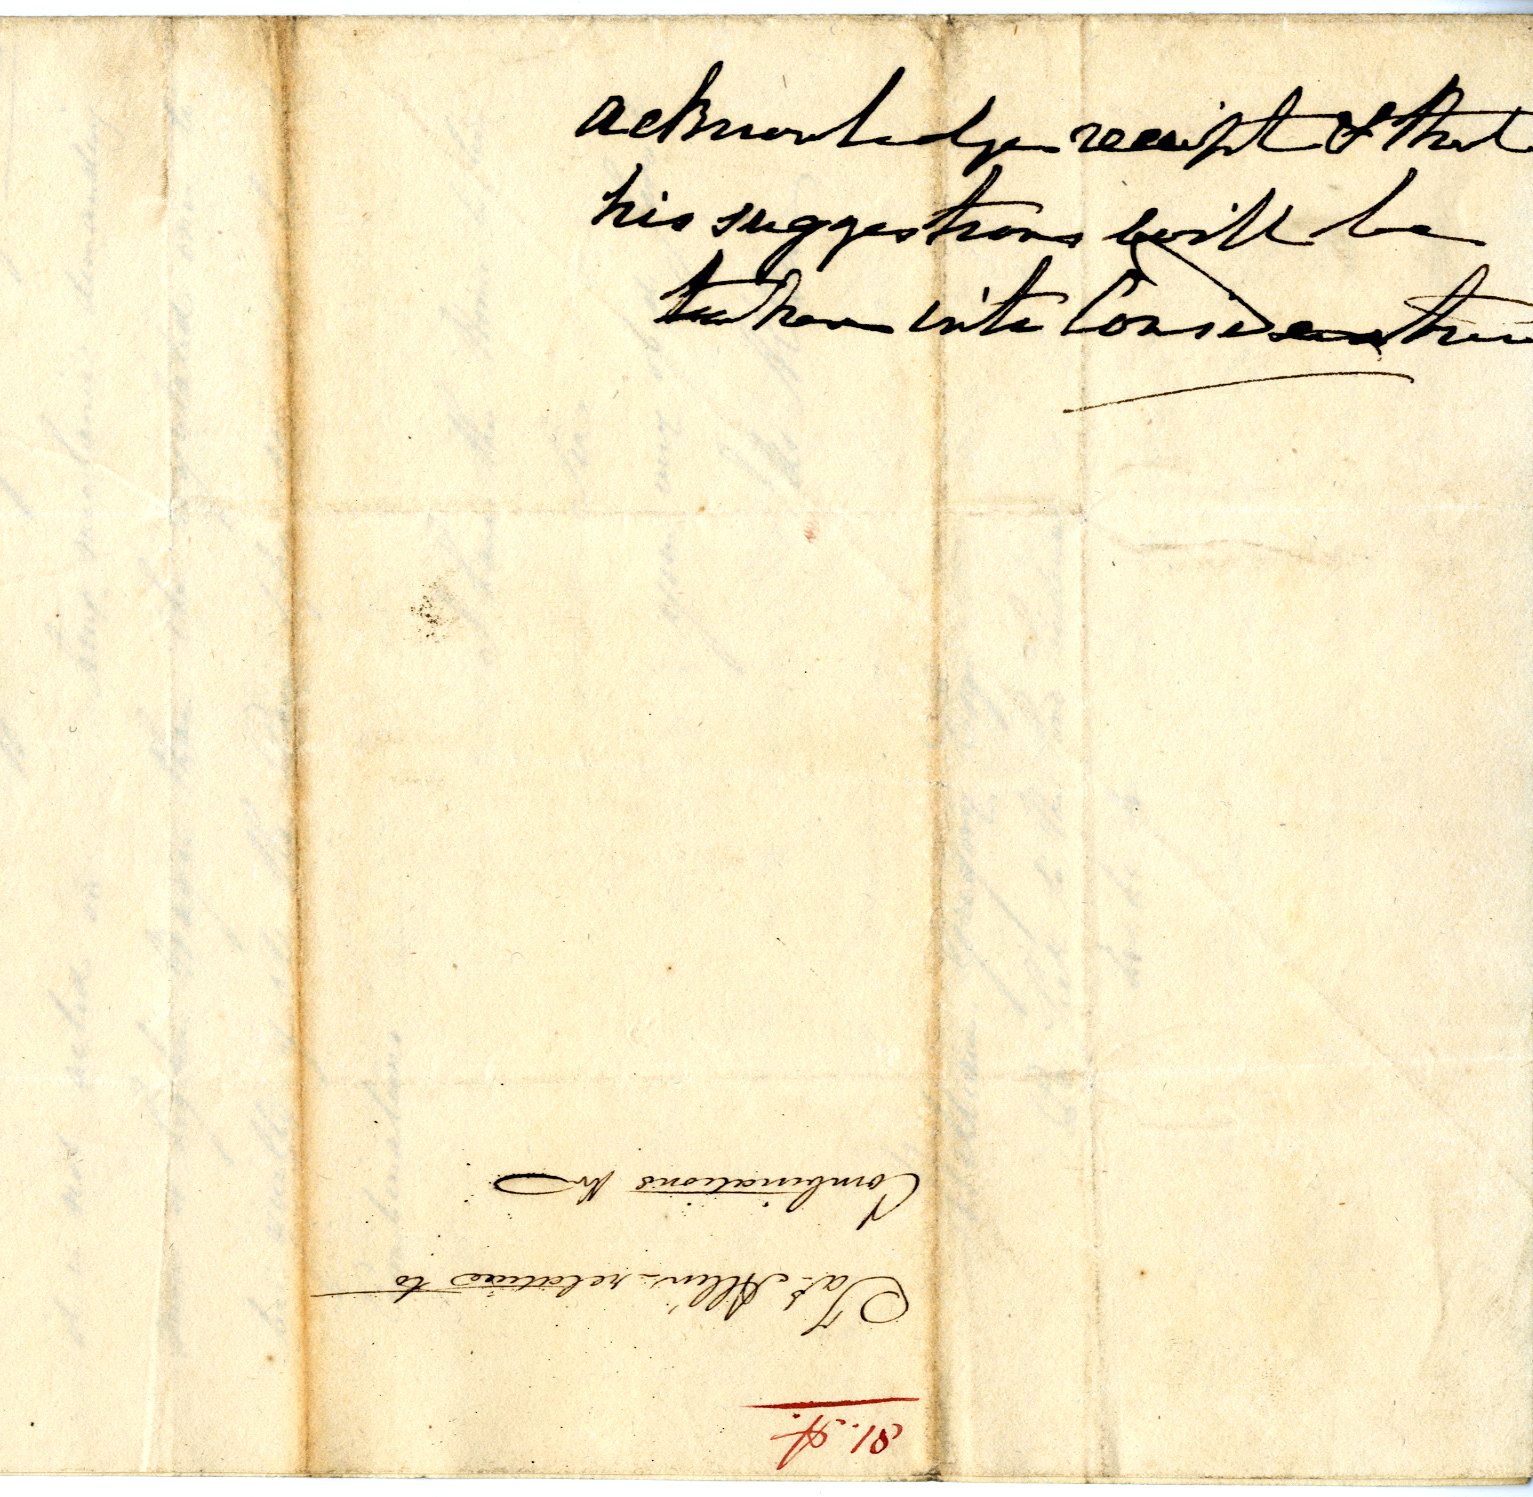 acknowledge receipt & that
his suggestions will be
taken into Consideration
81. A.
Jas. Allen relative to
Combinations &c